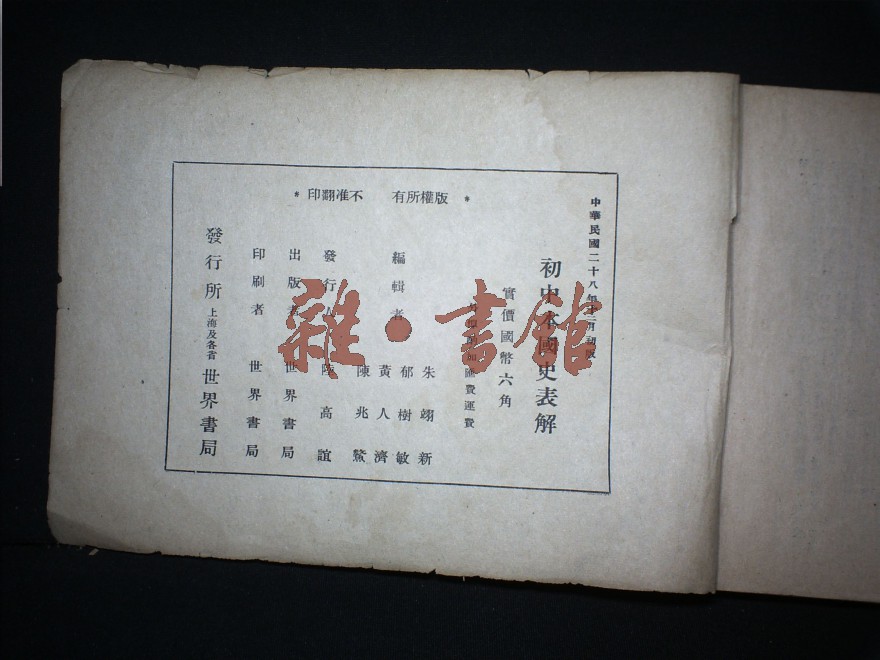 中華民國二十八年十二月初版
初中本國史表解
實價國幣六角
加匯費運費
編輯者 朱翊新 郁樹敏 黃人濟 陳兆鰲
發行人 陸高誼
出版者 世界書局
印刷者 世界書局
發行所 上海及各省 世界書局
* 版權所有 不准翻印 *
雜·書館